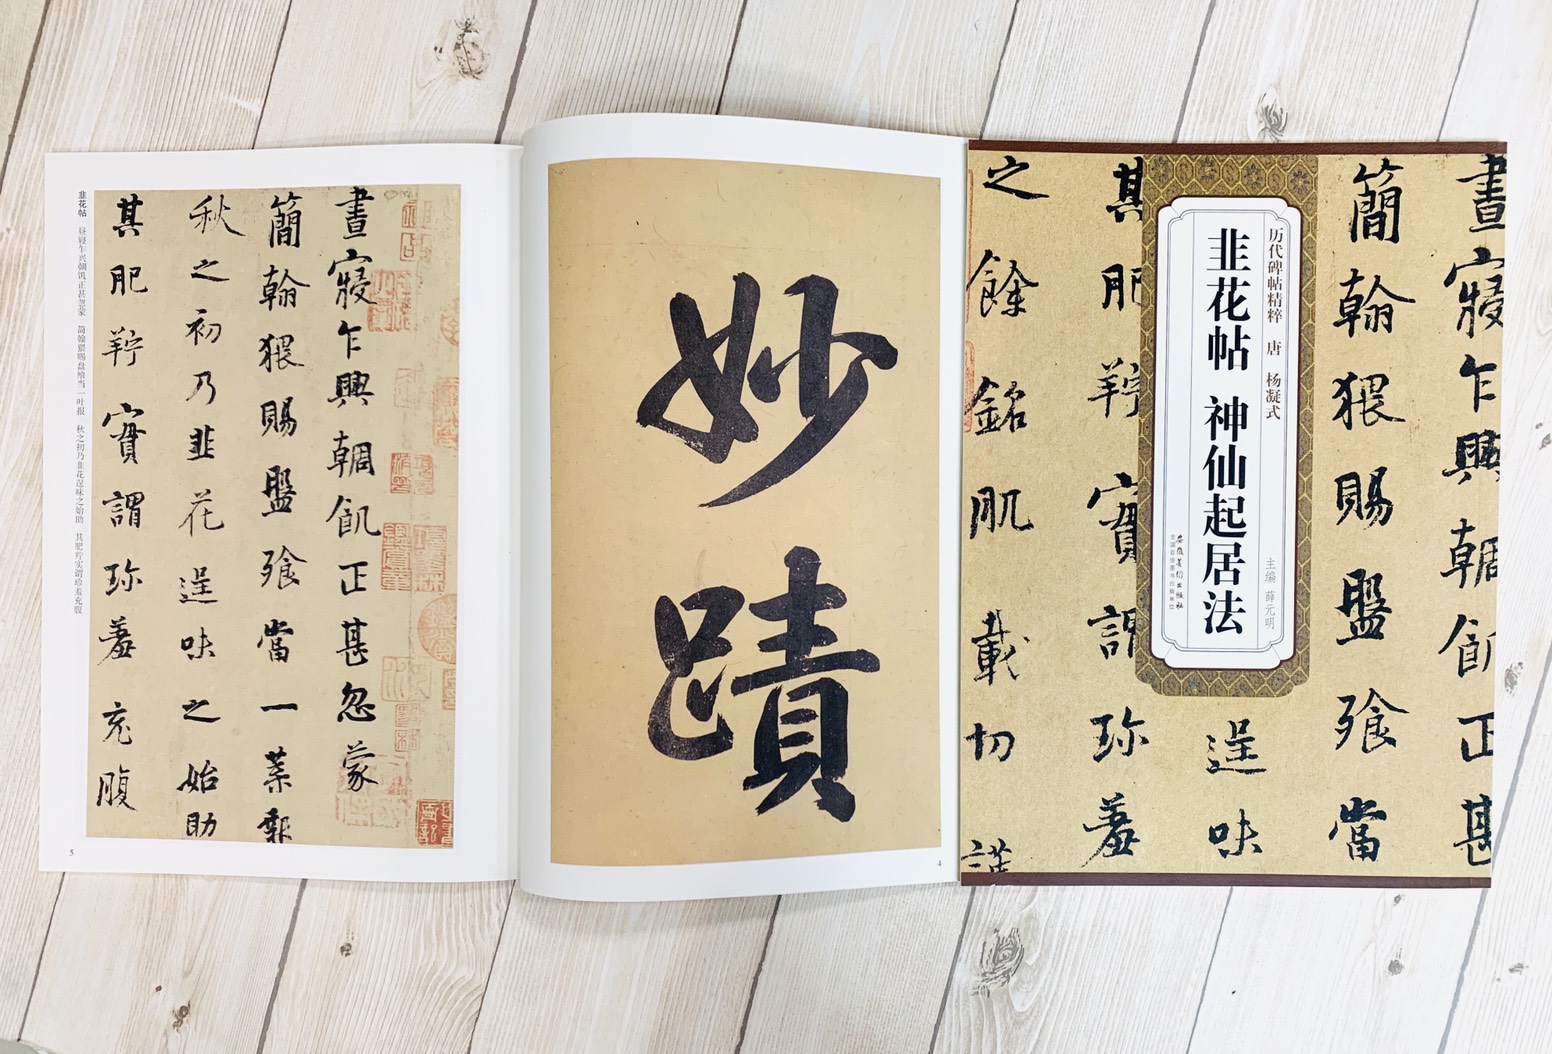 晝寢乍興輖飢正甚
簡翰猥賜盤飧當
历代碑帖精粹 唐 杨凝式
主编 薛元明
韭花帖 神仙起居法
安徽美术出版社
全国百佳图书出版单位
逞味
其肥羜實謂珍羞
之餘銘肌載切謹
妙蹟
4
晝寢乍興輖飢正甚忽蒙
簡翰猥賜盤飧當一葉報
秋之初乃韭花逞味之始助
其肥羜實謂珍羞充腹
韭花帖 昼寝乍兴朝饥正甚忽蒙 简翰猥赐盘飧当一叶报 秋之初乃韭花逞味之始助 其肥羜实谓珍羞充腹
5